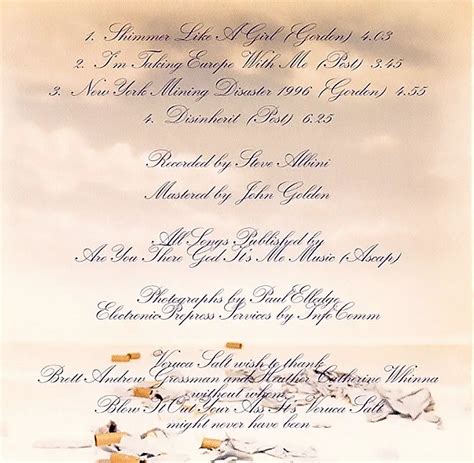 1. Shimmer Like A Girl (Gordon) 4.03
2. I'm Taking Europe With Me (Post) 3.45
3. New York Mining Disaster 1996 (Gordon) 4.55
4. Disinherit (Post) 6.25
Recorded by Steve Albini
Mastered by John Golden
All Songs Published by
Are You There God It's Me Music (Ascap)
Photographs by Paul Elledge
Electronic Prepress Services by InfoComm
Veruca Salt wish to thank
Brett Andrew Grossman and Heather Catherine Whinna
without whom,
Blow It Out Your Ass It's Veruca Salt
might never have been